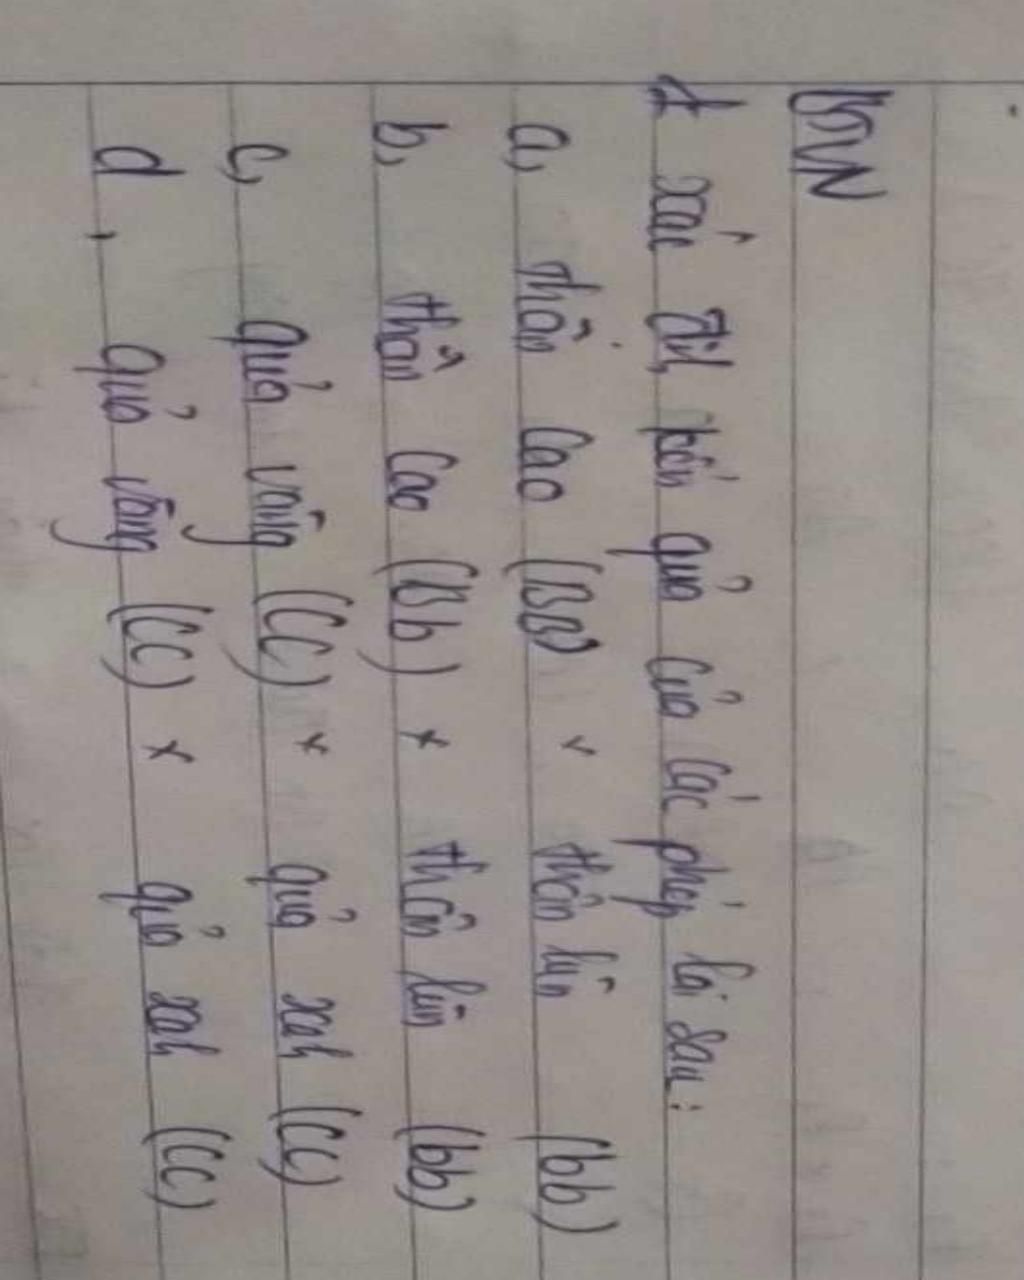 BTVN
1 xác định kết quả của các phép lai sau:
a, thân cao (BB) x thân lùn (bb)
b, thân cao (Bb) x thân lùn (bb)
c, quả vàng (CC) x quả xah (CC)
d, quả vàng (CC) x quả xah (CC)